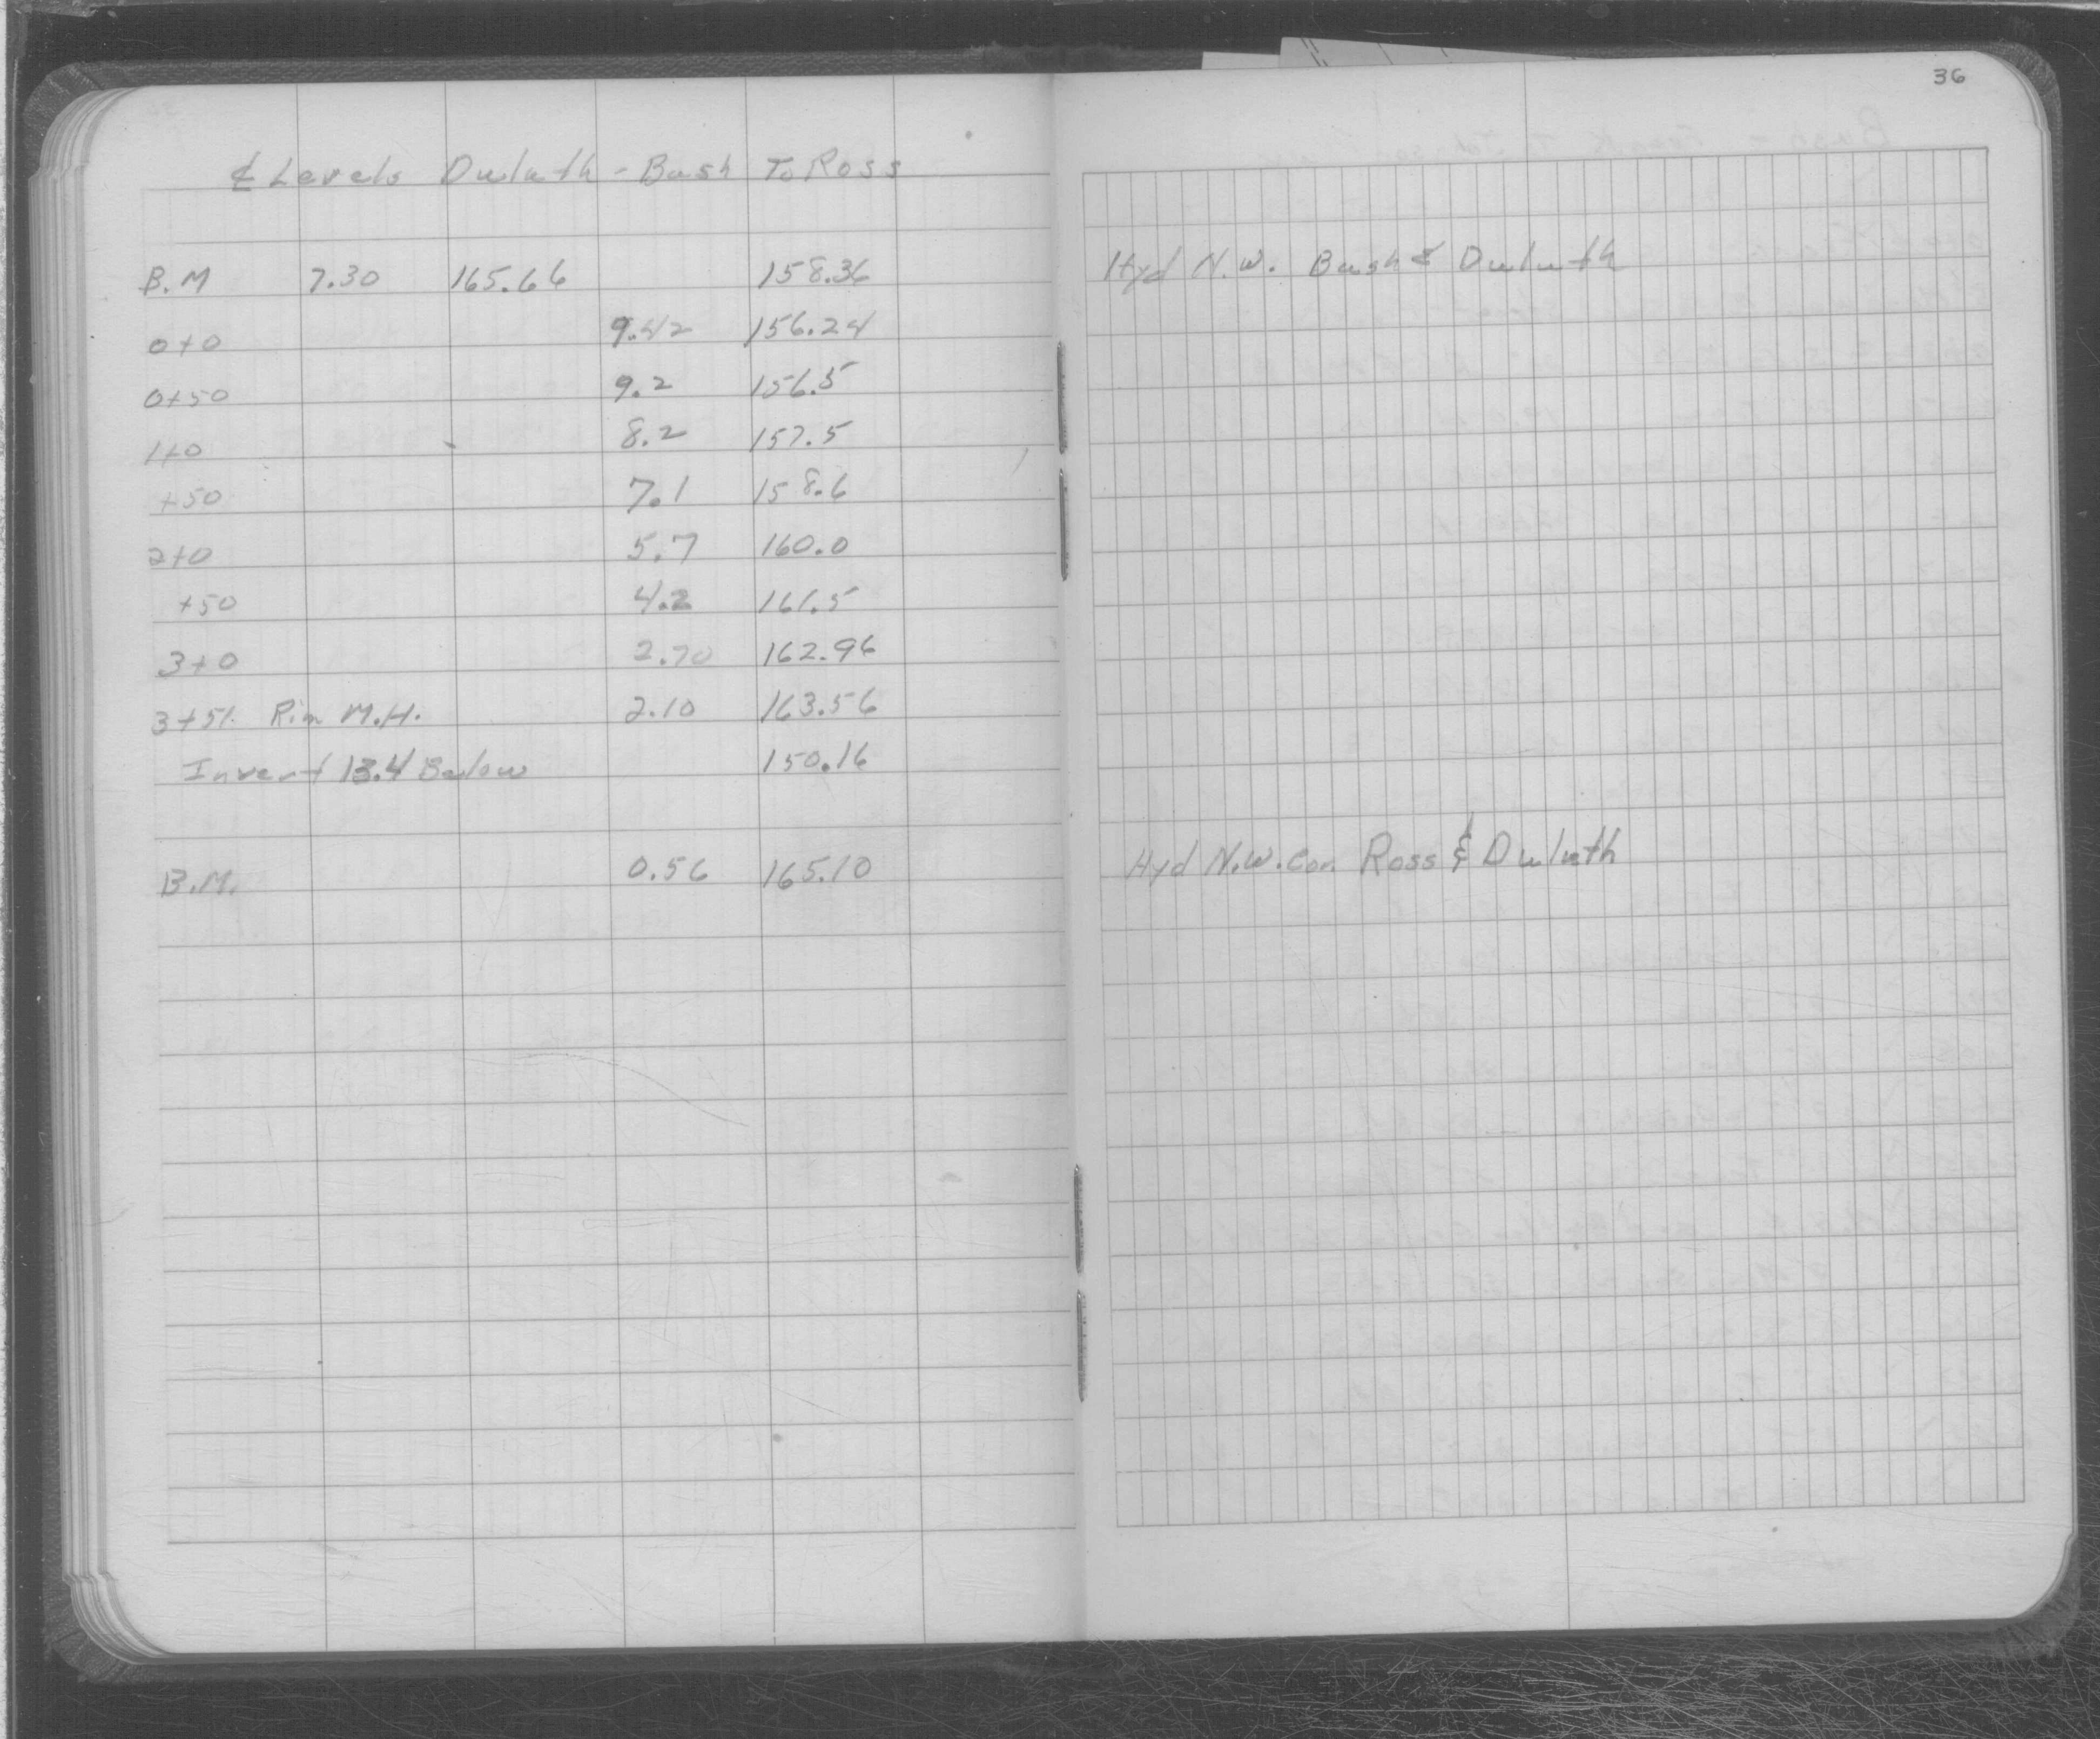 36
℄ Levels Duluth - Bush To Ross
B.M 7.30 165.66 158.36 Hyd N.W. Bush & Duluth
0+0 9.42 156.24
0+50 9.2 156.5
1+0 8.2 157.5
+50 7.1 158.6
2+0 5.7 160.0
+50 4.2 161.5
3+0 2.70 162.96
3+51 Rim M.H. 2.10 163.56
Invert 13.4 Below 150.16
B.M. 0.56 165.10 Hyd N.W. Cor. Ross & Duluth